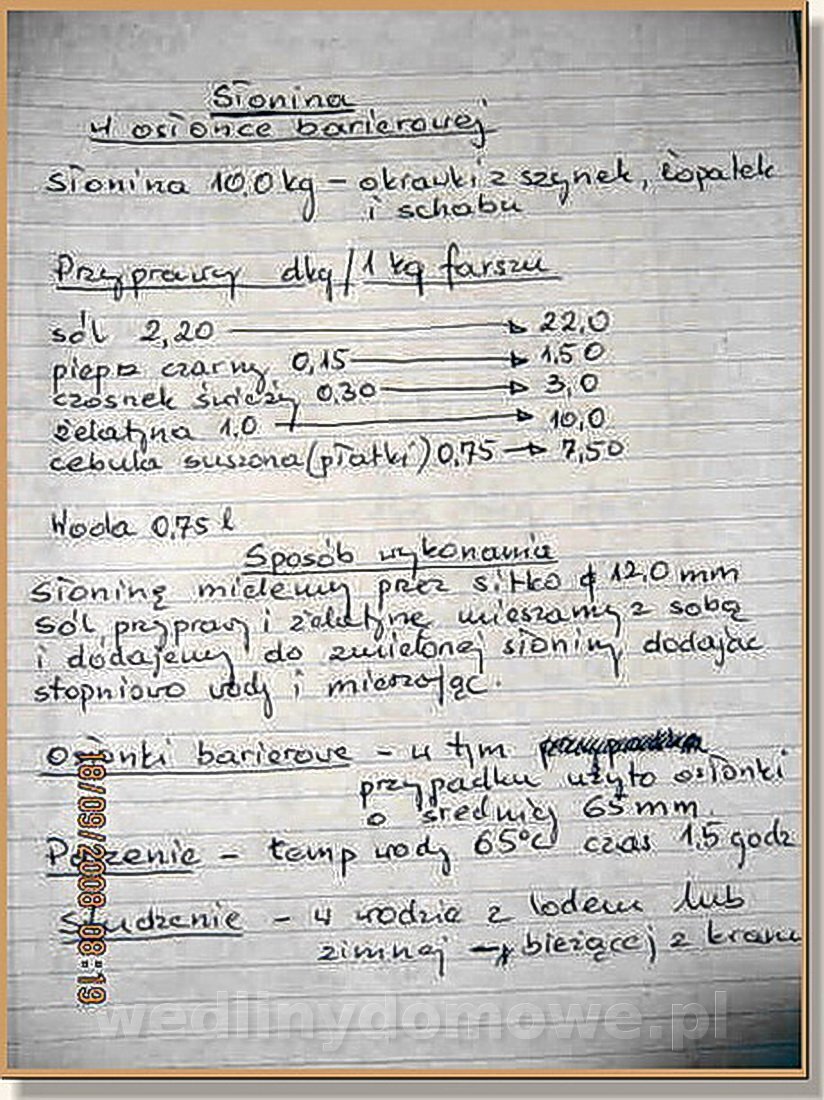 Słonina
w osłonce barierowej
Słonina 10,0 kg – okrawki z szynek, łopatek
i schabu
Przyprawy dkg/1 kg farszu
sól 2,20 → 22,0
pieprz czarny 0,15 → 1,50
czosnek świeży 0,30 → 3,0
żelatyna 1,0 → 10,0
cebula suszona (płatki) 0,75 → 7,50
Woda 0,75 l
Sposób wykonania
Słoninę mielemy przez sitko φ 12,0 mm
sól, przyprawy i żelatynę mieszamy z sobą
i dodajemy do zmielonej słoniny dodając
stopniowo wody i mieszając.
Osłonki barierowe – w tym
przypadku użyto osłonki
o średnicy 65 mm.
Parzenie – temp wody 65°C czas 1,5 godz
Studzenie – w wodzie z lodem lub
zimnej → bieżącej z kranu
18/09/2008 08:19
wedlinydomowe.pl